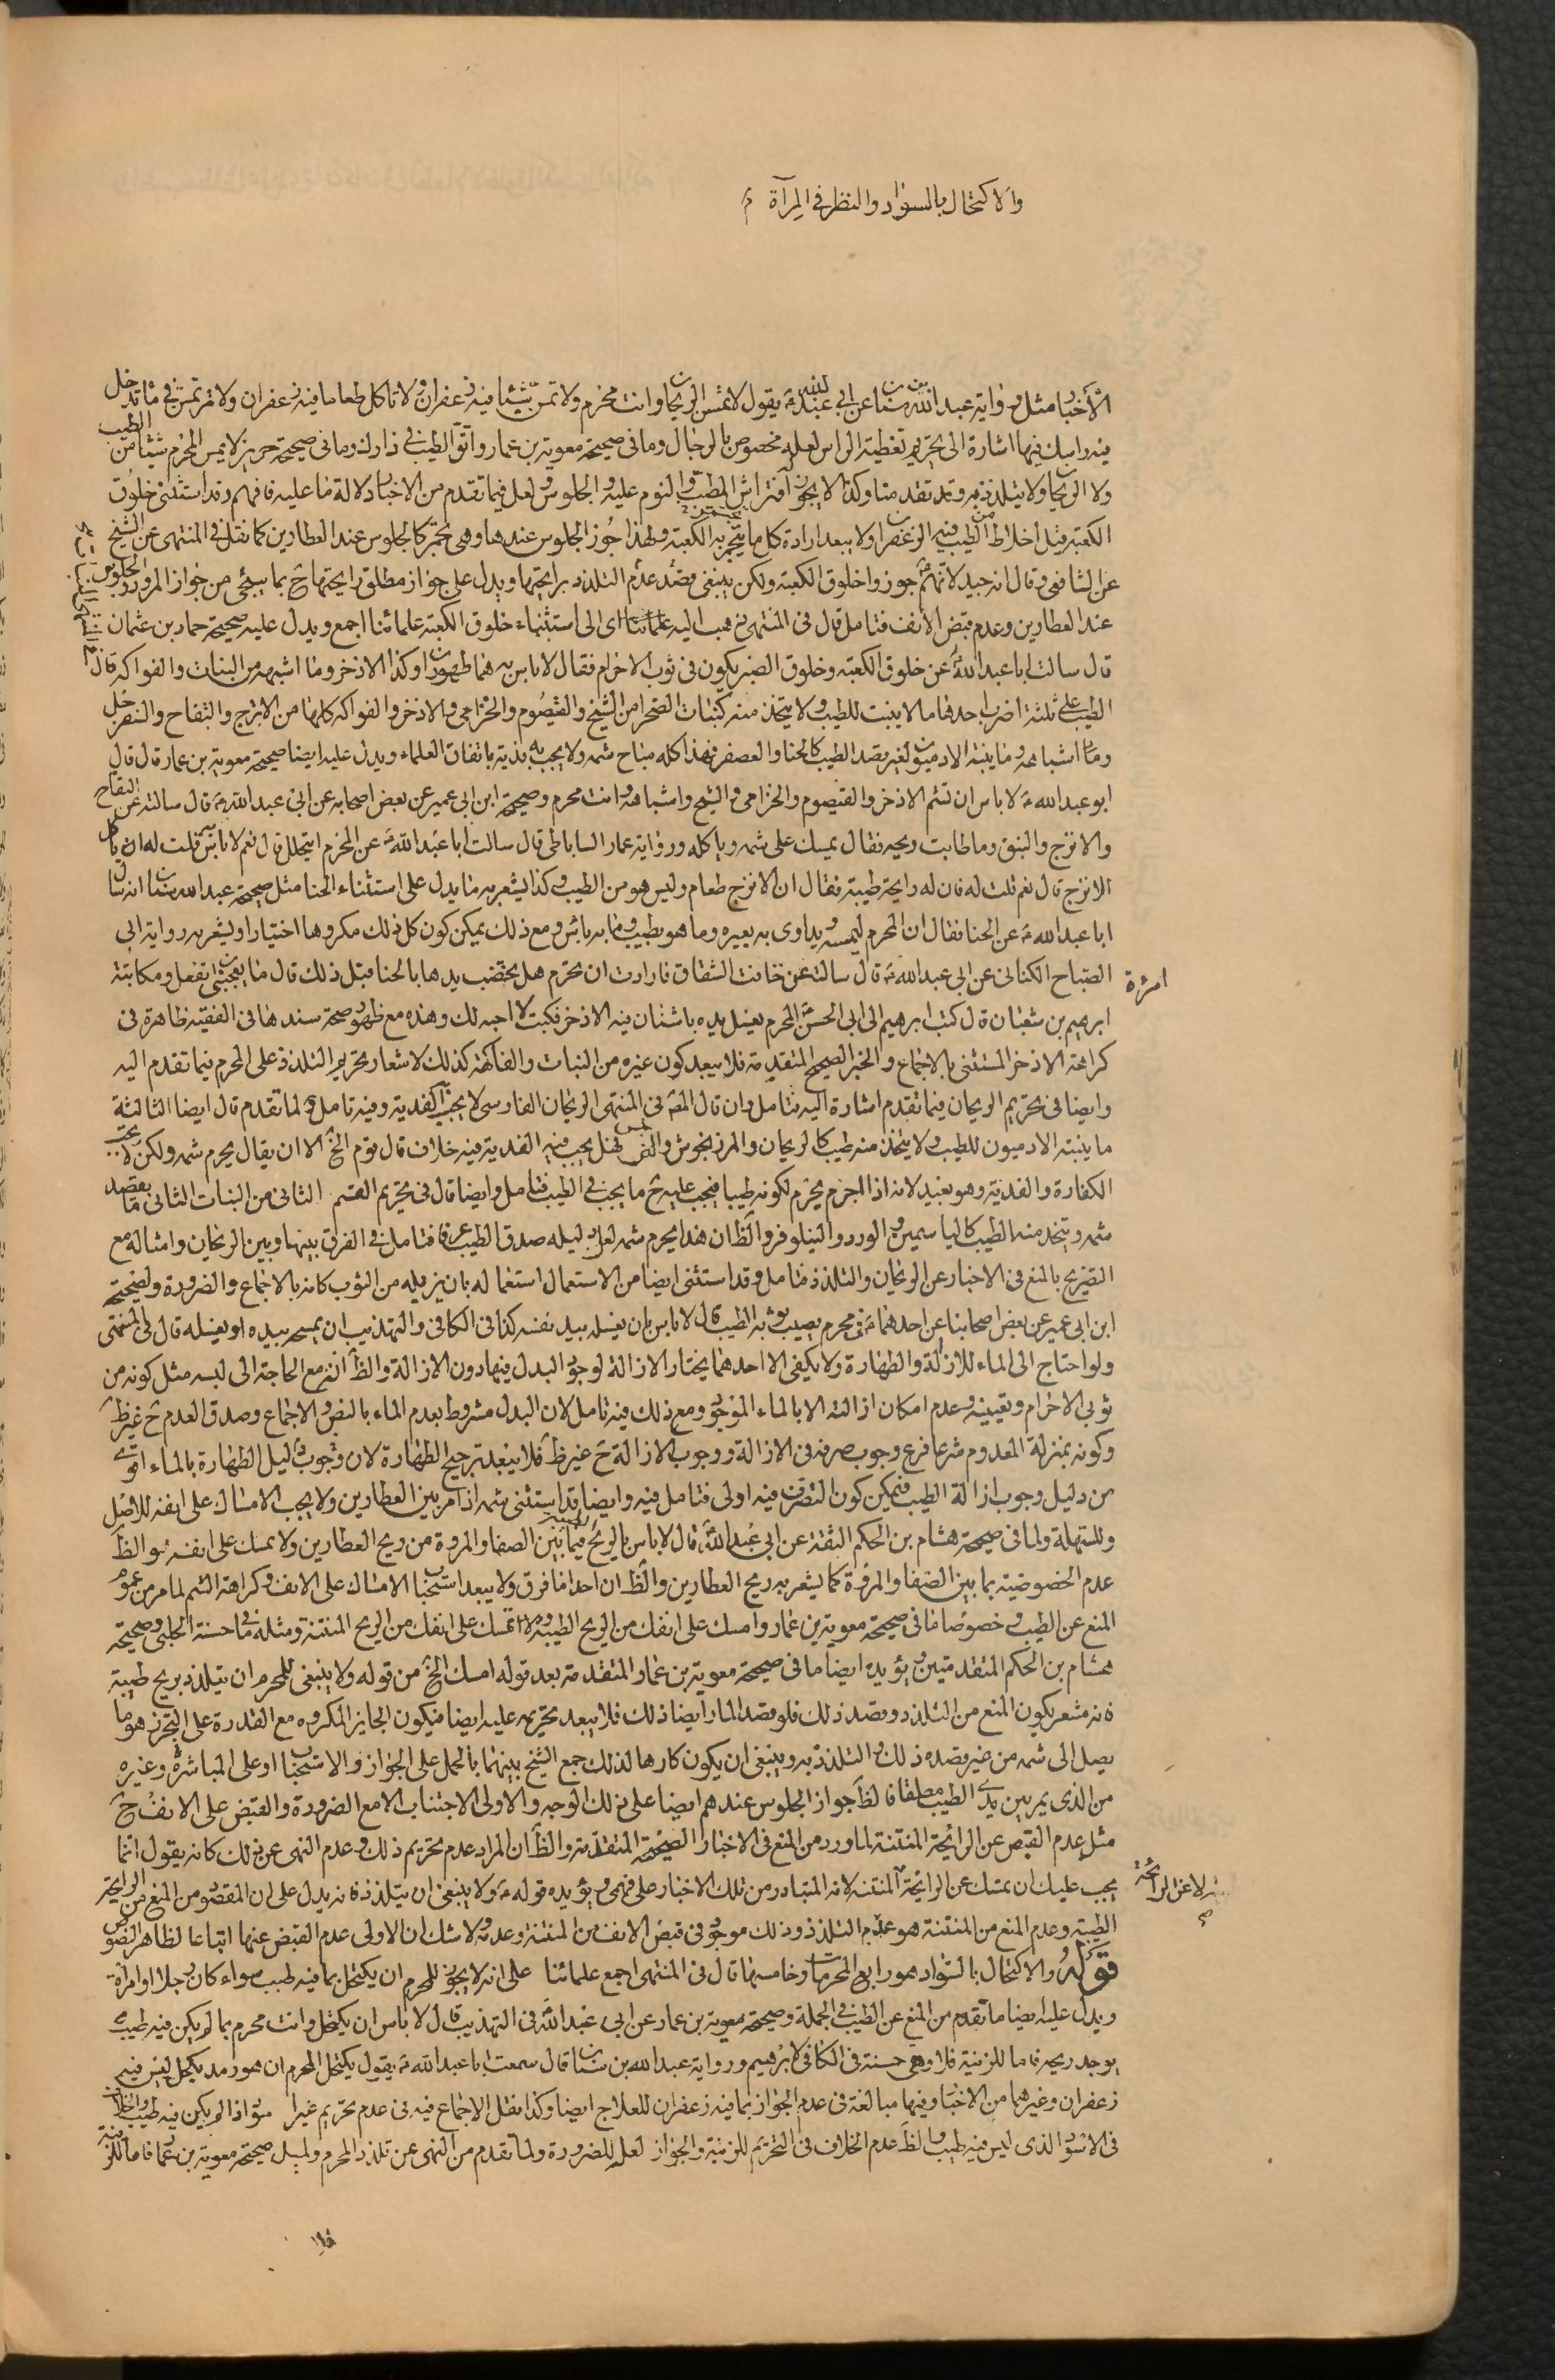 والاكتحال بالسواد والنظر في المرآة
الاخبار مثل رواية عبد الله بن سنان عن ابي عبد الله ع يقول لا تمس الريحان وانت محرم ولا تمس شيئا فيه زعفران ولا تاكل طعاما فيه زعفران ولا ترتمس في ماء تدخل
فيه راسك فيها اشارة الى تحريم تغطية الراس لعله مخصوص بالرجال وما في صحيحة معوية بن عمار واتق الطيب في زادك وما في صحيحة حريز لا يمس المحرم شيئا من الطيب
ولا الريحان ولا يتلذذ به وقد تقدمتا وكذا لا يجوز افتراش المطيب والنوم عليه والجلوس ولعل فيما تقدم من الاخبار دلالة ما عليه فافهم وقد استثنى خلوق
الكعبة قيل اخلاط من الطيب فيه الزعفران ولا يبعد ارادة كل ما يتجمر به الكعبة ولهذا جوز الجلوس عندها وهي تجمر كالجلوس عند العطارين كما نقل في المنتهى عن الشيخ
عن الشافعي وقال انه جيد لانهم جوزوا خلوق الكعبة ولكن ينبغي قصد عدم التلذذ برايحتها ويدل على جواز مطلق رايحتها ح بما سيجئ من جواز المرور والجلوس
عند العطارين وعدم قبض الانف فتامل قال في المنتهى ذهب اليه علمائنا اي الى استثناء خلوق الكعبة علمائنا اجمع ويدل عليه صحيحة حماد بن عثمان
قال سالت ابا عبد الله ع عن خلوق الكعبة وخلوق القبر يكون في ثوب الاحرام فقال لا باس به هما طهوران وكذا الاذخر وما اشبهه من النبات والفواكه قال
الطيب على ثلثة اضرب احدها ما لا ينبت للطيب ولا يتخذ منه كنبات الصحرا من الشيح والقيصوم والخزامى والاذخر والفواكه كلها من الاترج والتفاح والسفرجل
وما اشباهه وما ينبته الادميون لغير قصد الطيب كالحنا والعصفر فهذا كله مباح شمه ولا يجب به فدية باتفاق العلماء ويدل عليه ايضا صحيحة معوية بن عمار قال قال
ابو عبد الله ع لا باس ان تشم الاذخر والقيصوم والخزامى والشيح واشباهه وانت محرم وصحيحة ابن ابي عمير عن بعض اصحابه عن ابي عبد الله ع قال سالته عن التفاح
والاترج والنبق وما طابت ريحه فقال يمسك على شمه وياكله ورواية عمار الساباطي قال سالت ابا عبد الله ع عن المحرم ايتخلل قال نعم لا باس قلت له ان ياكل
الاترج قال نعم قلت له فان له رايحة طيبة فقال ان الاترج طعام وليس هو من الطيب وكذا يشعر به ما يدل على استثناء الحنا مثل صحيحة عبد الله بن سنان انه سال
ابا عبد الله ع عن الحنا فقال ان المحرم ليمسه ويداوي به بعيره وما هو بطيب وما به باس ومع ذلك يمكن كون كل ذلك مكروها اختيارا ويشعر به رواية ابي
الصباح الكناني عن ابي عبد الله ع قال سالته عن امرءة خافت الشقاق فارادت ان تحرم هل تخضب يدها بالحنا قبل ذلك قال ما يعجبني ان تفعل ومكاتبة
ابرهيم بن شعبان قال كتب ابرهيم الى ابي الحسن ع المحرم يغسل يده باشنان فيه الاذخر فكتب لا احبه لك وهذه مع ظهور صحة سندها في الفقيه ظاهرة في
كراهة الاذخر المستثنى بالاجماع والخبر الصحيح المتقدمة فلا يبعد كون غيره من النبات والفاكهة كذلك لاشعار تحريم التلذذ على المحرم فيما تقدم اليه
وايضا في تحريم الريحان فيما تقدم اشارة اليه فتامل وان قال المص في المنتهى الريحان الفارسي لا يجب به الفدية وفيه تامل ولما تقدم قال ايضا الثالثة
ما ينبته الادميون للطيب ولا يتخذ منه طيب كالريحان والمرزنجوش والنرجس فهل يجب فيه الفدية فيه خلاف قال قوم الخ الا ان يقال يحرم شمه ولكن لا يجب
الكفارة والفدية وهو بعيد لانه اذا المحرم يحرم لكونه طيبا فيجب عليه ح ما يجب في الطيب فتامل وايضا قال في تحريم القسم الثاني من النبات الثاني ما يقصد
شمه ويتخذ منه الطيب كالياسمين والورد والنيلوفر والظ ان هذا يحرم شمه لعل دليله صدق الطيب عرفا فتامل في الفرق بينها وبين الريحان وامثاله مع
التصريح بالمنع في الاخبار عن الريحان والتلذذ فتامل وقد استثنى ايضا من الاستعمال استعماله بان يزيله من الثوب كانه بالاجماع والضرورة ولصحيحة
ابن ابي عمير عن بعض اصحابنا عن احدهما ع في محرم يصيب ثوبه الطيب قال لا باس بان يغسله بيد نفسه كذا في الكافي والتهذيب ان يمسحه بيده او يغسله قال في المنتهى
ولو احتاج الى الماء للازالة والطهارة ولا يكفي الا احدهما يختار الازالة لوجود البدل فيها دون الازالة والظ انه مع الحاجة الى لبسه مثل كونه من
ثوبي الاحرام وتعيينه وعدم امكان ازالته الا بالماء الموجود ومع ذلك فيه تامل لان البدل مشروط بعدم الماء بالنص والاجماع وصدق العدم ح غير ظ
وكونه بمنزلة المعدوم شرعا فرع وجوب صرفه في الازالة ووجوب الازالة ح غير ظ فلا يبعد ترجيح الطهارة لان وجوب دليل الطهارة بالماء اقوى
من دليل وجوب ازالة الطيب فيمكن كون التصرف فيه اولى فتامل فيه وايضا قد استثنى شمه اذا مر بين العطارين ولا يجب الامساك على انفه للاصل
وللسهلة ولما في صحيحة هشام بن الحكم الثقة عن ابي عبد الله ع قال لا باس بالريح الطيبة فيما بين الصفا والمروة من ريح العطارين ولا يمسك على انفه والظ
عدم الخصوصية بما بين الصفا والمروة كما يشعر به ريح العطارين والظ ان احدا ما فرق ولا يبعد استحباب الامساك على الانف وكراهة الشم لما مر من عموم
المنع عن الطيب وخصوصا ما في صحيحة معوية بن عمار وامسك على انفك من الريح الطيبة ولا تمسك على انفك من الريح المنتنة ومثله في ما حسنة الحلبي وصحيحة
هشام بن الحكم المتقدمتين ويؤيده ايضا ما في صحيحة معوية بن عمار المتقدمة بعد قوله امسك الخ من قوله ولا ينبغي للمحرم ان يتلذذ بريح طيبة
فانه مشعر بكون المنع من التلذذ وقصد ذلك فلو قصد المار ايضا ذلك فلا يبعد تحريمه عليه ايضا فيكون الجايز المكروه مع القدرة على التحرز هو ما
يصل الى شمه من غير قصده ذلك والتلذذ به وينبغي ان يكون كارها لذلك جمع الشيخ بينهما بالحمل على الجواز والاستحباب او على المباشرة وغيره
من الذي يمر بين يدي الطيب مطلقا فالظ جواز الجلوس عندهم ايضا على ذلك الوجه والاولى الاجتناب الا مع الضرورة والقبض على الانف ح
مثل عدم القبض عن الرائحة المنتنة لما ورد من المنع في الاخبار الصحيحة المتقدمة والظ ان المراد عدم تحريم ذلك وعدم النهي عن ذلك كانه يقول انما
يجب عليك ان تمسك عن الرائحة لا عن الرائحة المنتنة لانه المتبادر من تلك الاخبار على فهمي ويؤيده قوله ع ولا ينبغي ان يتلذذ فانه يدل على ان المقصود من المنع من الرايحة
الطيبة وعدم المنع من المنتنة هو عدم التلذذ وذلك موجود في قبض الانف من المنتنة وعدمه ولا شك ان الاولى عدم القبض عنها اتباعا لظاهر النصوص
قوله والاكتحال بالسواد هو رابع المحرمات وخامسها قال في المنتهى اجمع علمائنا على انه لا يجوز للمحرم ان يكتحل بما فيه طيب سواء كان رجلا او امراة
ويدل عليه ايضا ما تقدم من المنع عن الطيب في الجملة وصحيحة معوية بن عمار عن ابي عبد الله ع في التهذيب قال لا باس ان يكتحل وانت محرم بما لم يكن فيه طيب
يوجد ريحه فاما للزينة فلا وهي حسنة في الكافي لابرهيم ورواية عبد الله بن سنان قال سمعت ابا عبد الله ع يقول يكتحل المحرم ان هو رمد بكحل ليس فيه
زعفران وغيرهما من الاخبار وفيها مبالغة في عدم الجواز بما فيه زعفران للعلاج ايضا وكذا نقل الاجماع فيه في عدم تحريم غير السواد اذا لم يكن فيه طيب والخلاف
في الاسود الذي ليس فيه طيب والظ عدم الخلاف في التحريم للزينة والجواز لعله للضرورة ولما تقدم من النهي عن تلذذ المحرم ولدليل صحيحة معوية بن عمار فاما للزينة
فلا